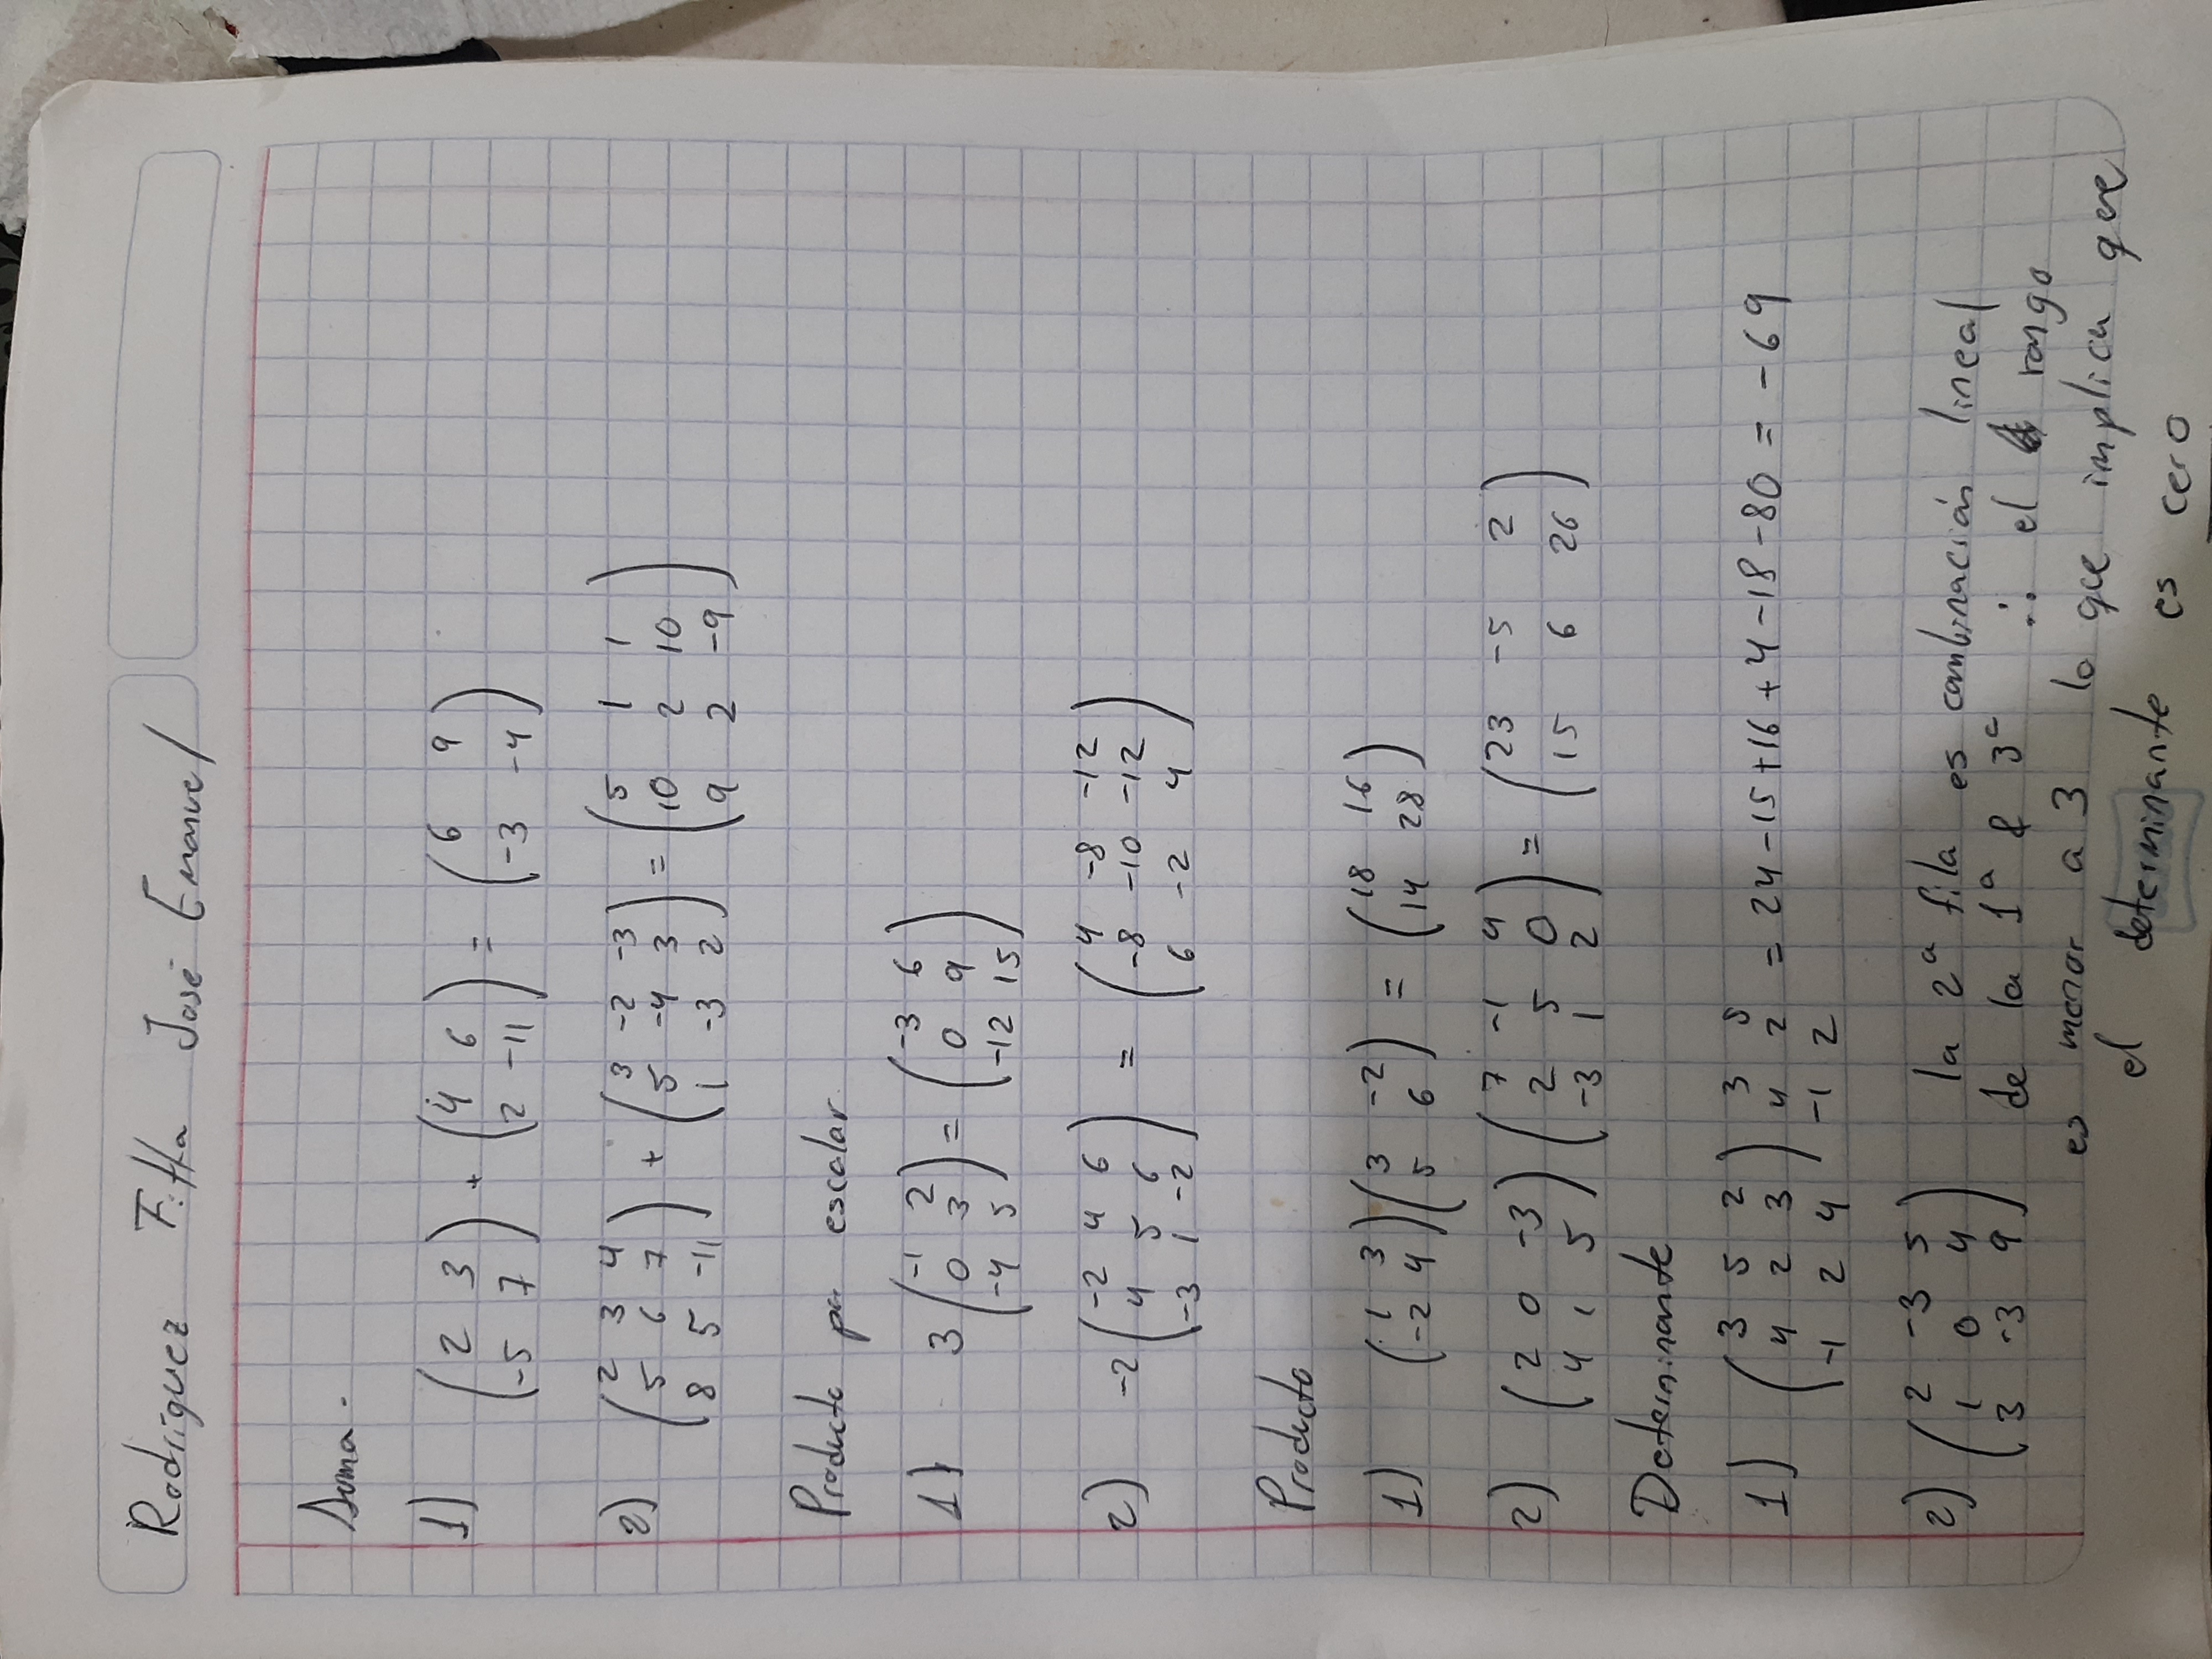 Rodríguez Fitta José Emanuel
Suma.
1) (2 3; -5 7) + (4 6; 2 -11) = (6 9; -3 -4)
2) (2 3 4; 5 6 7; 8 5 -11) + (3 -2 -3; 5 -4 3; 1 -3 2) = (5 1 1; 10 2 10; 9 2 -9)
Producto por escalar
1) 3 (-1 2; 0 3; -4 5) = (-3 6; 0 9; -12 15)
2) -2 (-2 4 6; 4 5 6; -3 1 -2) = (4 -8 -12; -8 -10 -12; 6 -2 4)
Producto
1) (1 3; -2 4) (3 -2; 5 6) = (18 16; 14 28)
2) (2 0 -3; 4 1 5) (7 -1 4; 2 5 0; -3 1 2) = (23 -5 2; 15 6 26)
Determinante
1) (3 5 2; 4 2 3; -1 2 4) 3 5; 4 2; -1 2 = 24 - 15 + 16 + 4 - 18 - 80 = -69
2) (2 -3 5; 1 0 4; 3 -3 9) la 2ª fila es combinación lineal
de la 1ª & 3ª ∴ el rango
es menor a 3 lo que implica que
el determinante es cero